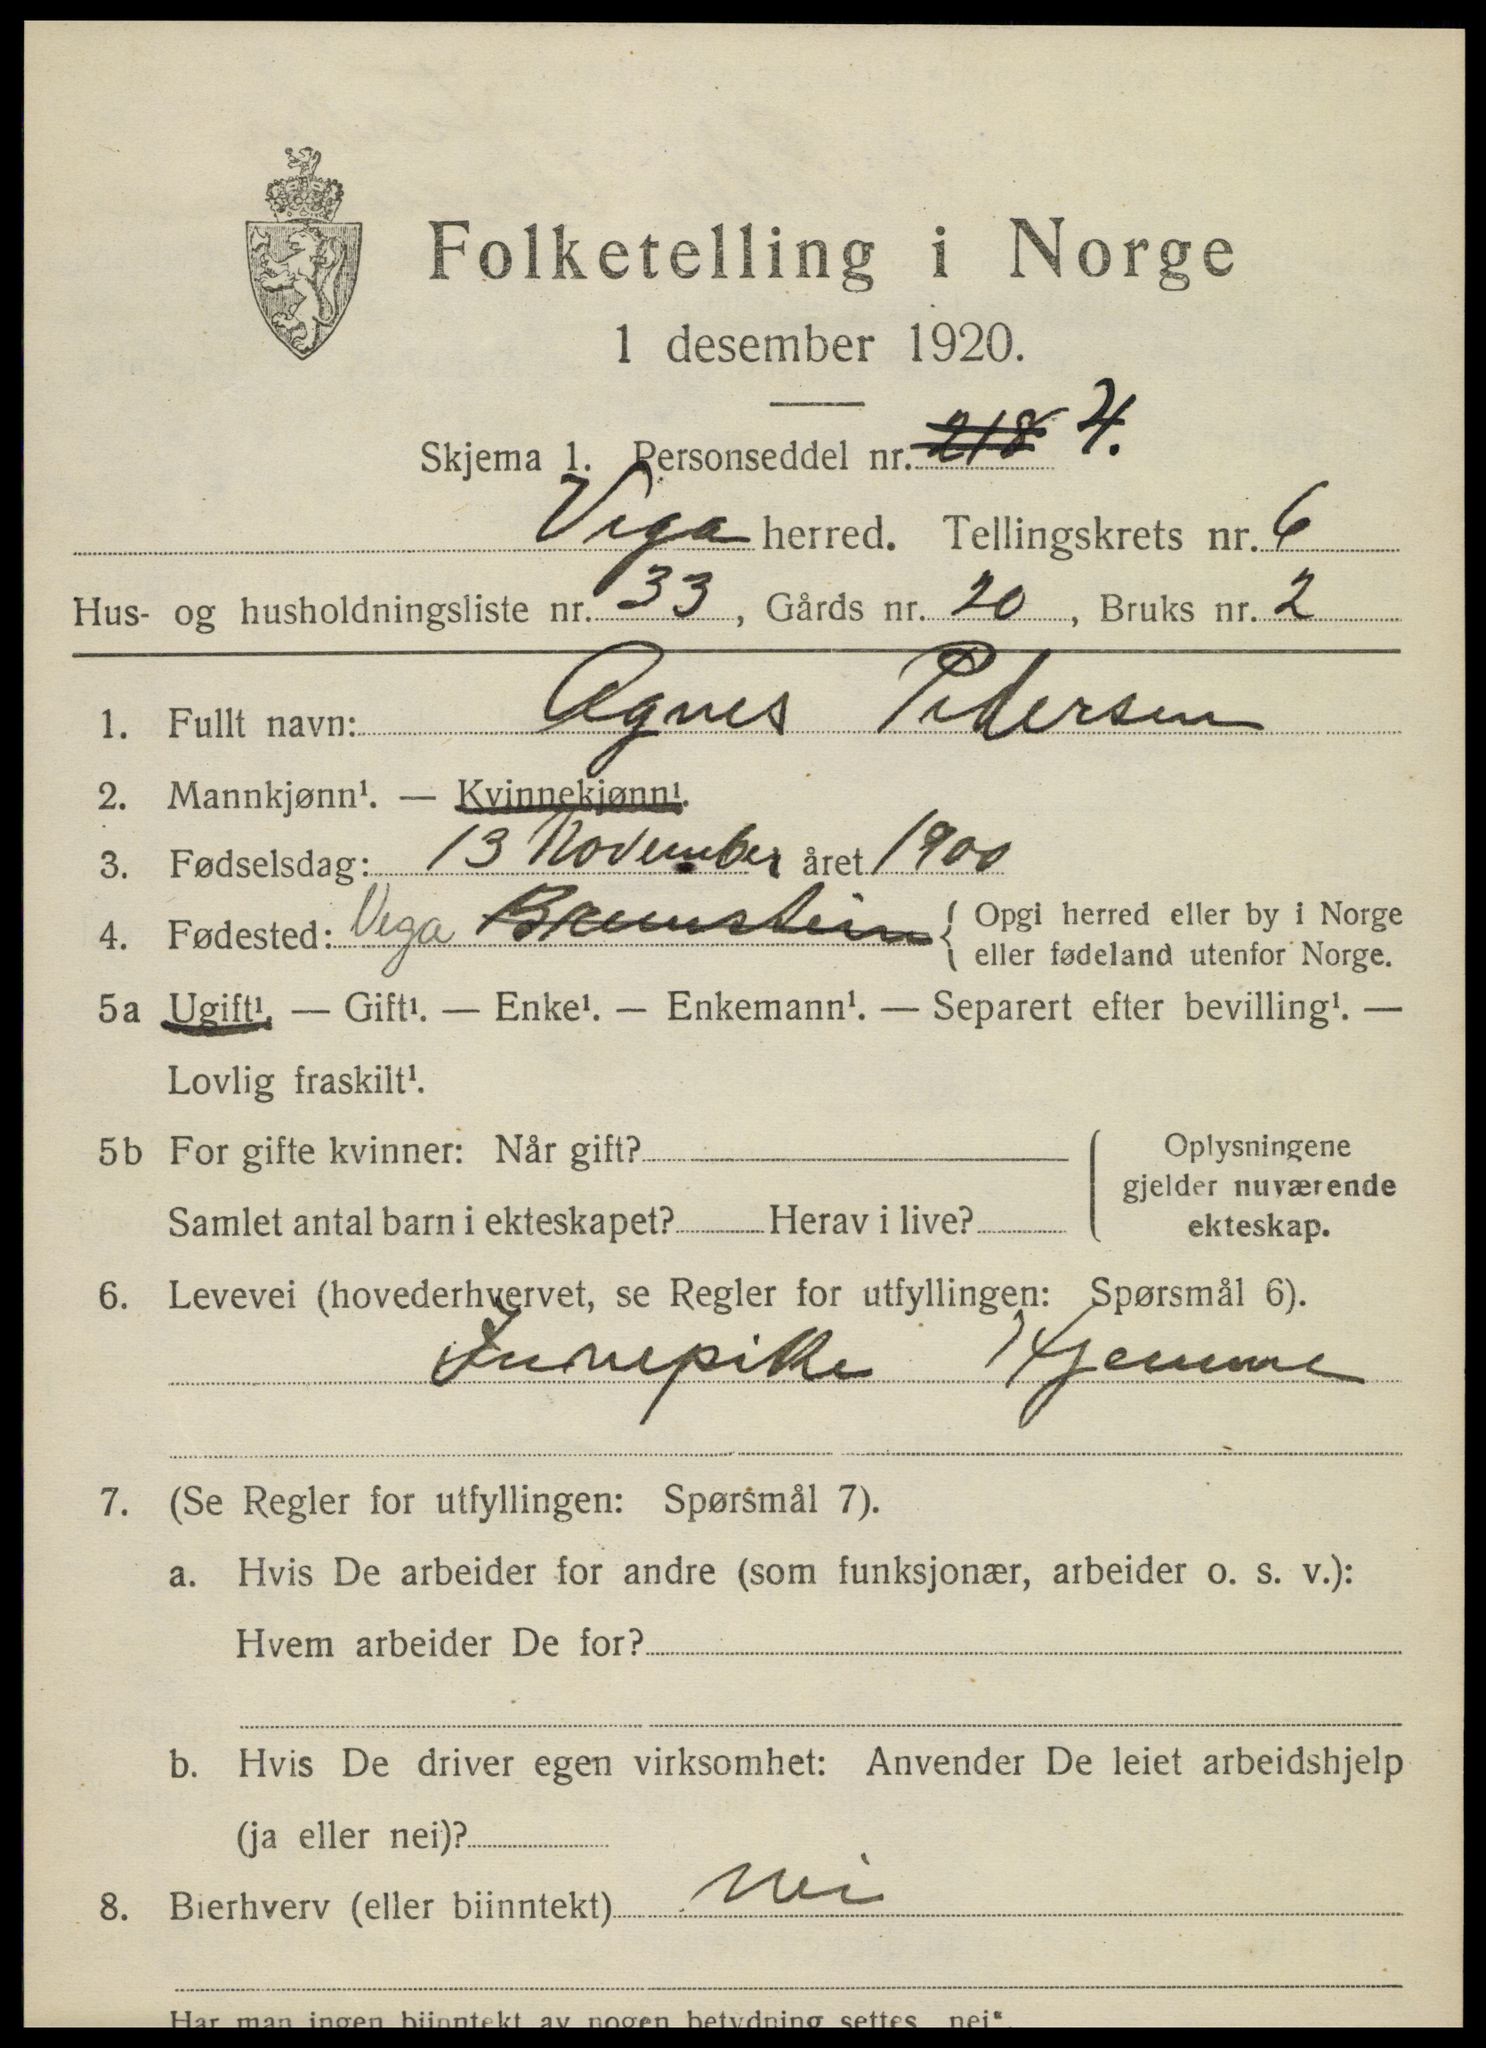 Folketelling i Norge
1 desember 1920.
Skjema 1. Personseddel nr. 218 4.
Vega herred. Tellingskrets nr. 6
Hus- og husholdningsliste nr. 33, Gårds nr. 20, Bruks nr. 2
1. Fullt navn: Agnes Pedersen
2. Mannkjønn¹. — Kvinnekjønn¹.
3. Fødselsdag: 13 November året 1900
4. Fødested: Vega { Opgi herred eller by i Norge
eller fødeland utenfor Norge.
5a Ugift¹. — Gift¹. — Enke¹. — Enkemann¹. — Separert efter bevilling¹. —
Lovlig fraskilt¹.
5b For gifte kvinner: Når gift? { Oplysningene
gjelder nuværende
Samlet antal barn i ekteskapet? Herav i live?
ekteskap.
6. Levevei (hovederhvervet, se Regler for utfyllingen: Spørsmål 6).
Innepike Hjemme
7. (Se Regler for utfyllingen: Spørsmål 7).
a. Hvis De arbeider for andre (som funksjonær, arbeider o. s. v.):
Hvem arbeider De for?
b. Hvis De driver egen virksomhet: Anvender De leiet arbeidshjelp
(ja eller nei)?
8. Bierhverv (eller biinntekt) Nei
Har man ingen biinntekt av nogen betydning settes „nei“.